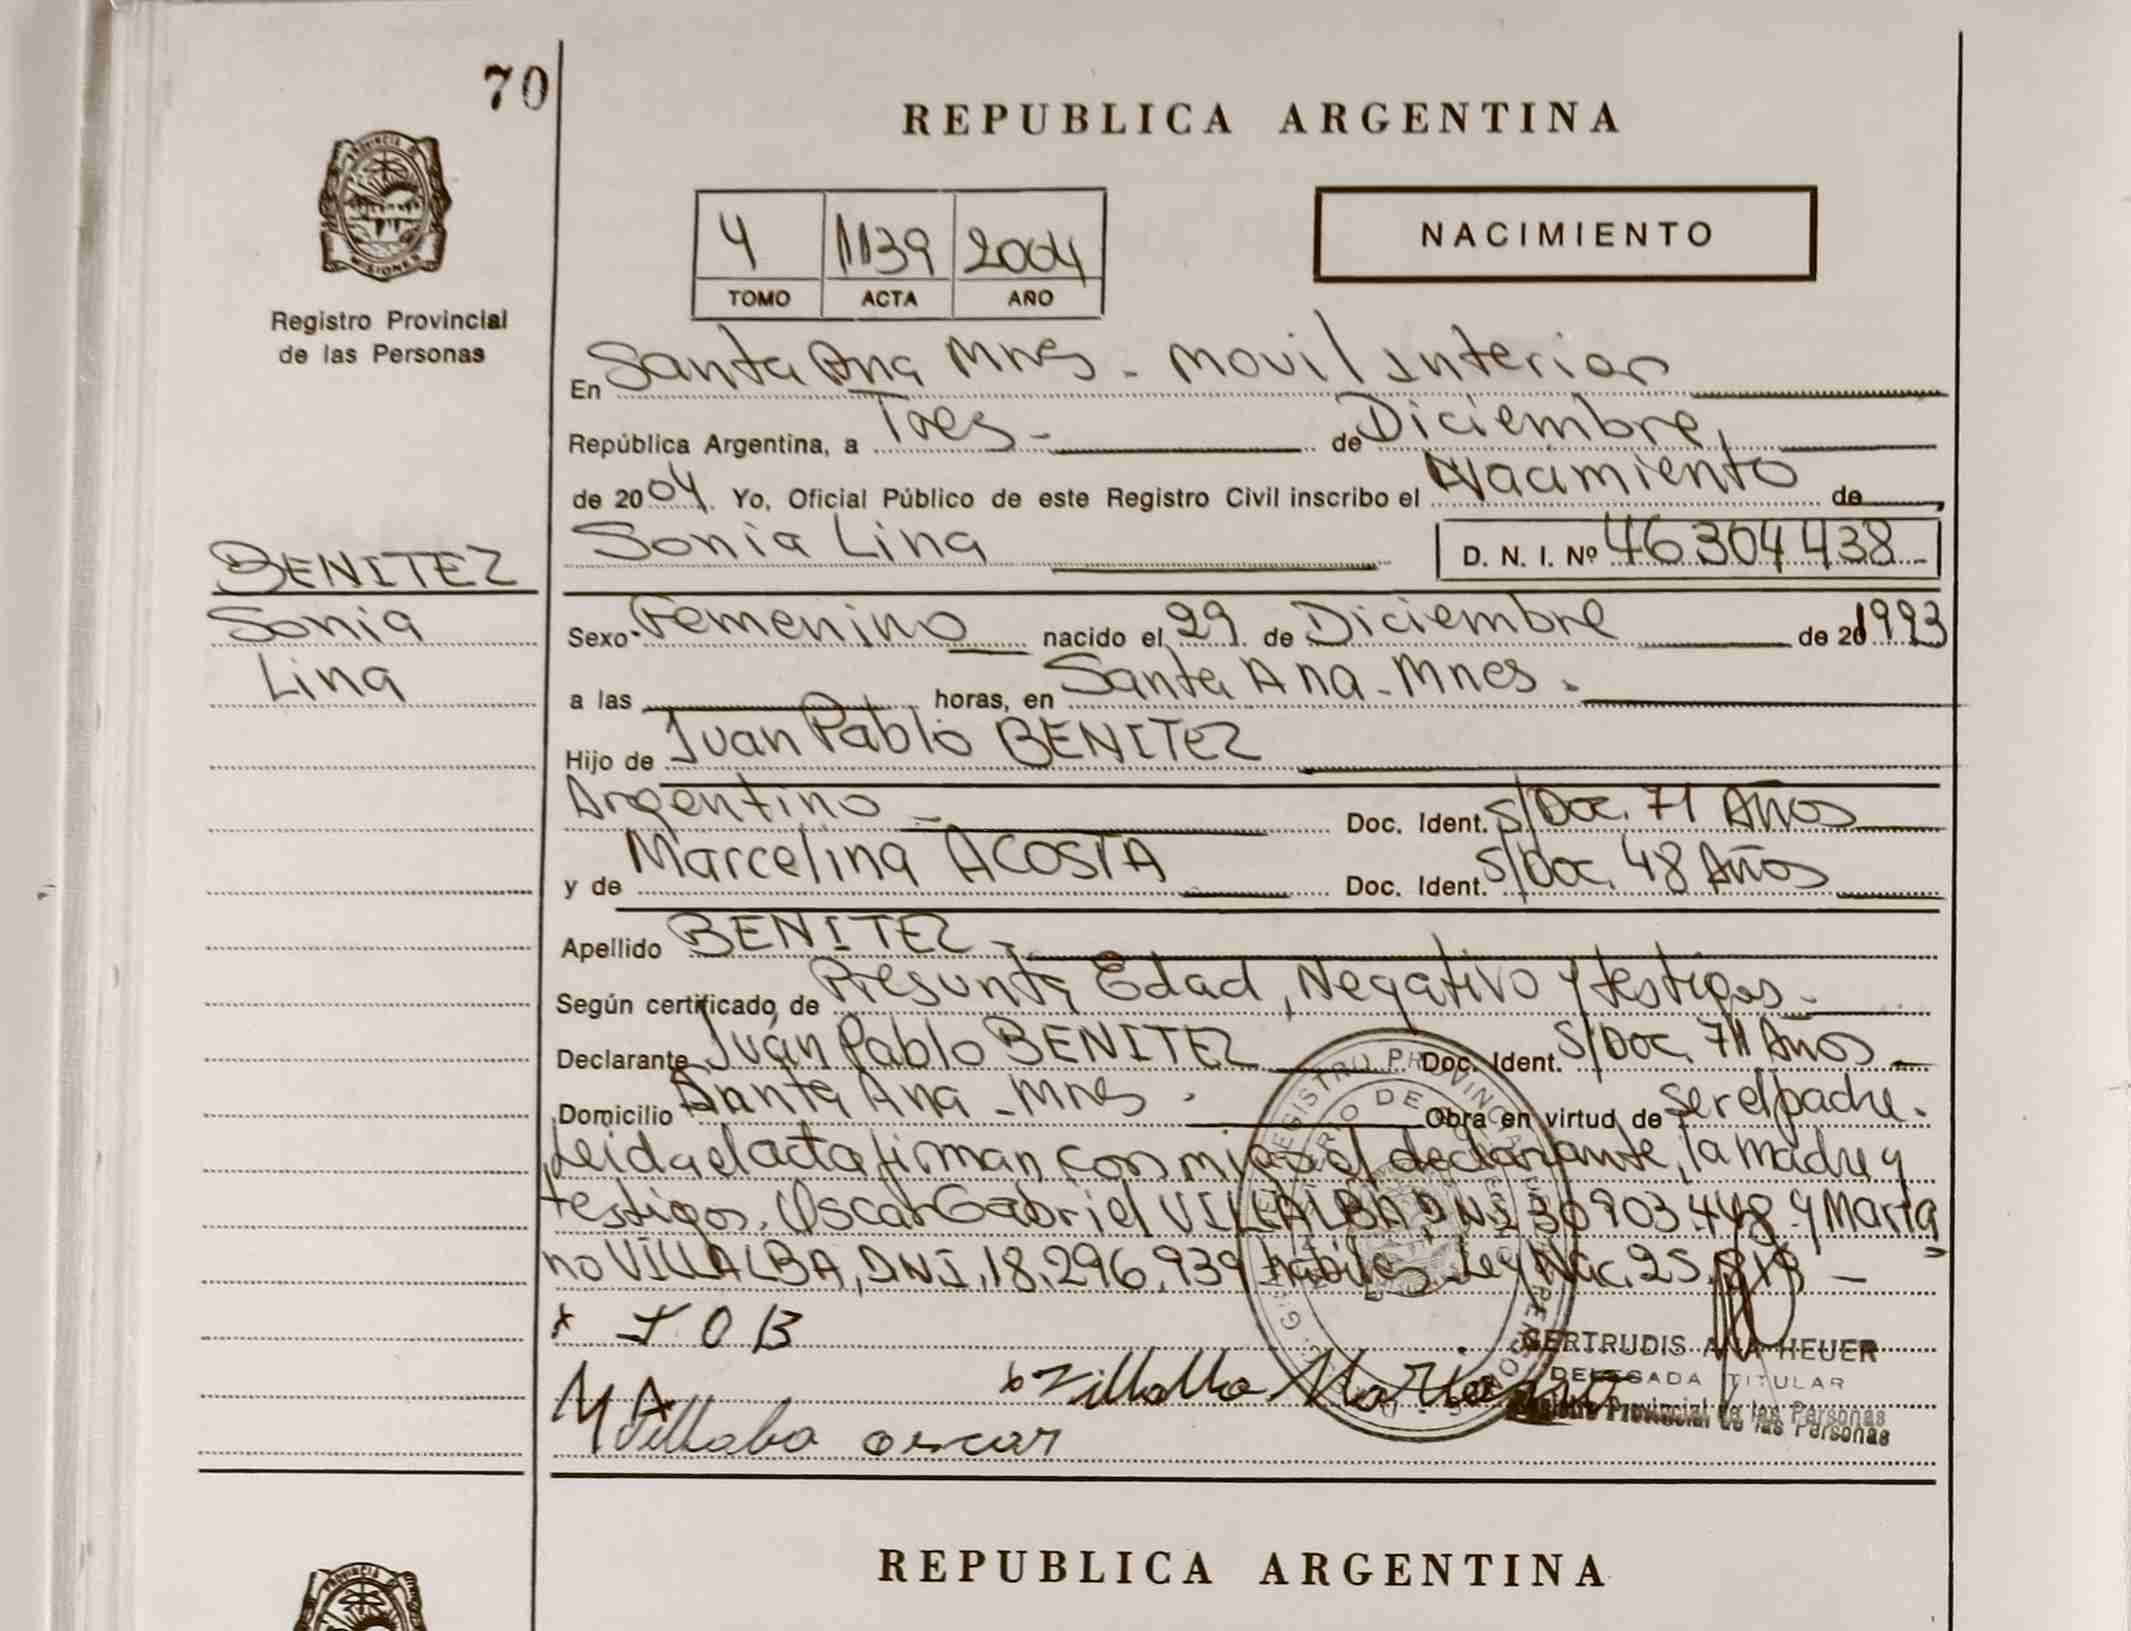 70
REPUBLICA ARGENTINA
4 1139 2004
TOMO ACTA AÑO
NACIMIENTO
MISIONES
Registro Provincial
de las Personas
En Santa Ana Mnes - Movil Interior
República Argentina, a Tres - de Diciembre,
de 2004. Yo, Oficial Público de este Registro Civil inscribo el Nacimiento de
Sonia Lina D. N. I. Nº 46.304.438-
BENITEZ
Sonia
Lina
Sexo Femenino nacido el 29 de Diciembre de 20 1993
a las horas, en Santa Ana - Mnes.
Hijo de Juan Pablo BENITEZ
Argentino - Doc. Ident. S/Doc. 71 Años
y de Marcelina ACOSTA Doc. Ident. S/Doc. 48 Años
Apellido BENITEZ -
Según certificado de Presunta Edad, Negativo y testigos -
Declarante Juan Pablo BENITEZ Doc. Ident. S/Doc. 71 Años -
Domicilio Santa Ana - Mnes. Obra en virtud de ser el padre.
Leida el acta firman conmigo el declarante, la madre y
testigos. Oscar Gabriel VILLALBA, DNI 30903.448 y Maria
no VILLALBA, DNI, 18.296.939 habiles. Ley Nac. 25. -
x J O B
M A
Villalba Mariano
Villalba oscar
GERTRUDIS ANA HEUER
DELEGADA TITULAR
Registro Provincial de las Personas
REPUBLICA ARGENTINA